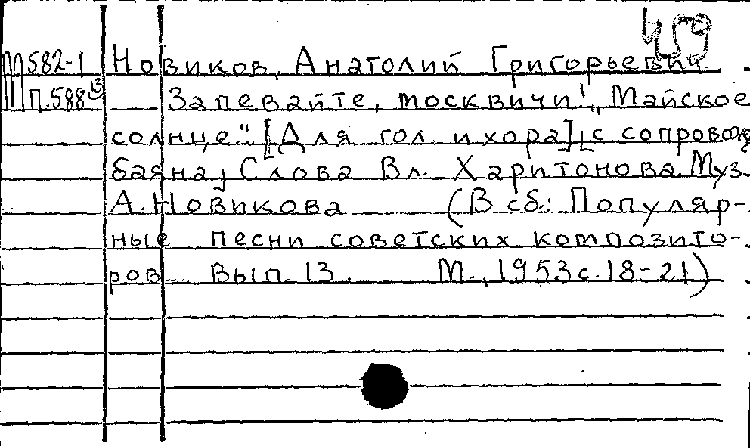 459
М582-1 Новиков, Анатолий Григорьевич
П.588 Запевайте, москвичи! „Майское
солнце". [Для гол. и хора], с сопровожд.
баяна, Слова Вл. Харитонова. Муз.
А. Новикова (В сб: Популяр-
ные песни советских компози­то-
ров Вып. 13. М., 1953 с. 18-21)